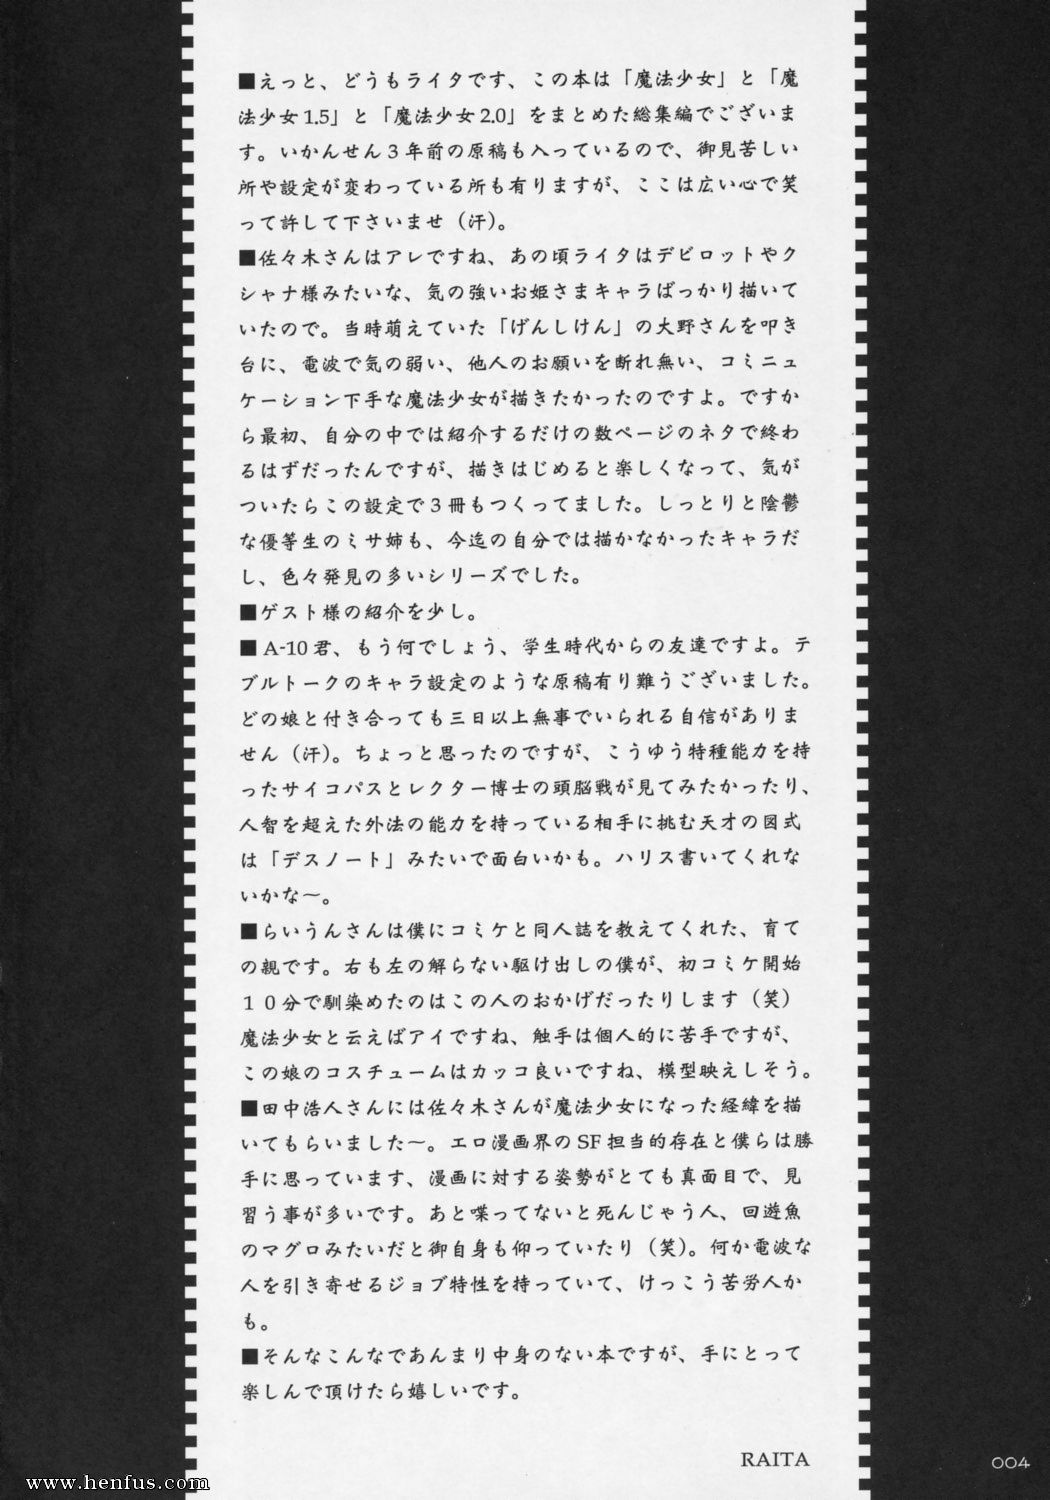 ■えっと、どうもライタです、この本は「魔法少女」と「魔
法少女1.5」と「魔法少女2.0」をまとめた総集編でございま
す。いかんせん３年前の原稿も入っているので、御見苦しい
所や設定が変わっている所も有りますが、ここは広い心で笑
って許して下さいませ（汗）。
■佐々木さんはアレですね、あの頃ライタはデビロットやク
シャナ様みたいな、気の強いお姫さまキャラばっかり描いて
いたので。当時萌えていた「げんしけん」の大野さんを叩き
台に、電波で気の弱い、他人のお願いを断れ無い、コミニュ
ケーション下手な魔法少女が描きたかったのですよ。ですか
ら最初、自分の中では紹介するだけの数ページのネタで終わ
るはずだったんですが、描きはじめると楽しくなって、気が
ついたらこの設定で３冊もつくってました。しっとりと陰鬱
な優等生のミサ姉も、今迄の自分では描かなかったキャラだ
し、色々発見の多いシリーズでした。
■ゲスト様の紹介を少し。
■A-10君、もう何でしょう、学生時代からの友達ですよ。テ
ブルトークのキャラ設定のような原稿有り難うございました。
どの娘と付き合っても三日以上無事でいられる自信がありま
せん（汗）。ちょっと思ったのですが、こうゆう特種能力を持
ったサイコパスとレクター博士の頭脳戦が見てみたかったり、
人智を超えた外法の能力を持っている相手に挑む天才の図式
は「デスノート」みたいで面白いかも。ハリス書いてくれな
いかな〜。
■らいうんさんは僕にコミケと同人誌を教えてくれた、育て
の親です。右も左の解らない駆け出しの僕が、初コミケ開始
１０分で馴染めたのはこの人のおかげだったりします（笑）
魔法少女と云えばアイですね、触手は個人的に苦手ですが、
この娘のコスチュームはカッコ良いですね、模型映えしそう。
■田中浩人さんには佐々木さんが魔法少女になった経緯を描
いてもらいました〜。エロ漫画界のSF担当的存在と僕らは勝
手に思っています、漫画に対する姿勢がとても真面目で、見
習う事が多いです。あと喋ってないと死んじゃう人、回遊魚
のマグロみたいだと御自身も仰っていたり（笑）。何か電波な
人を引き寄せるジョブ特性を持っていて、けっこう苦労人か
も。
■そんなこんなであんまり中身のない本ですが、手にとって
楽しんで頂けたら嬉しいです。
RAITA
004
www.henfus.com